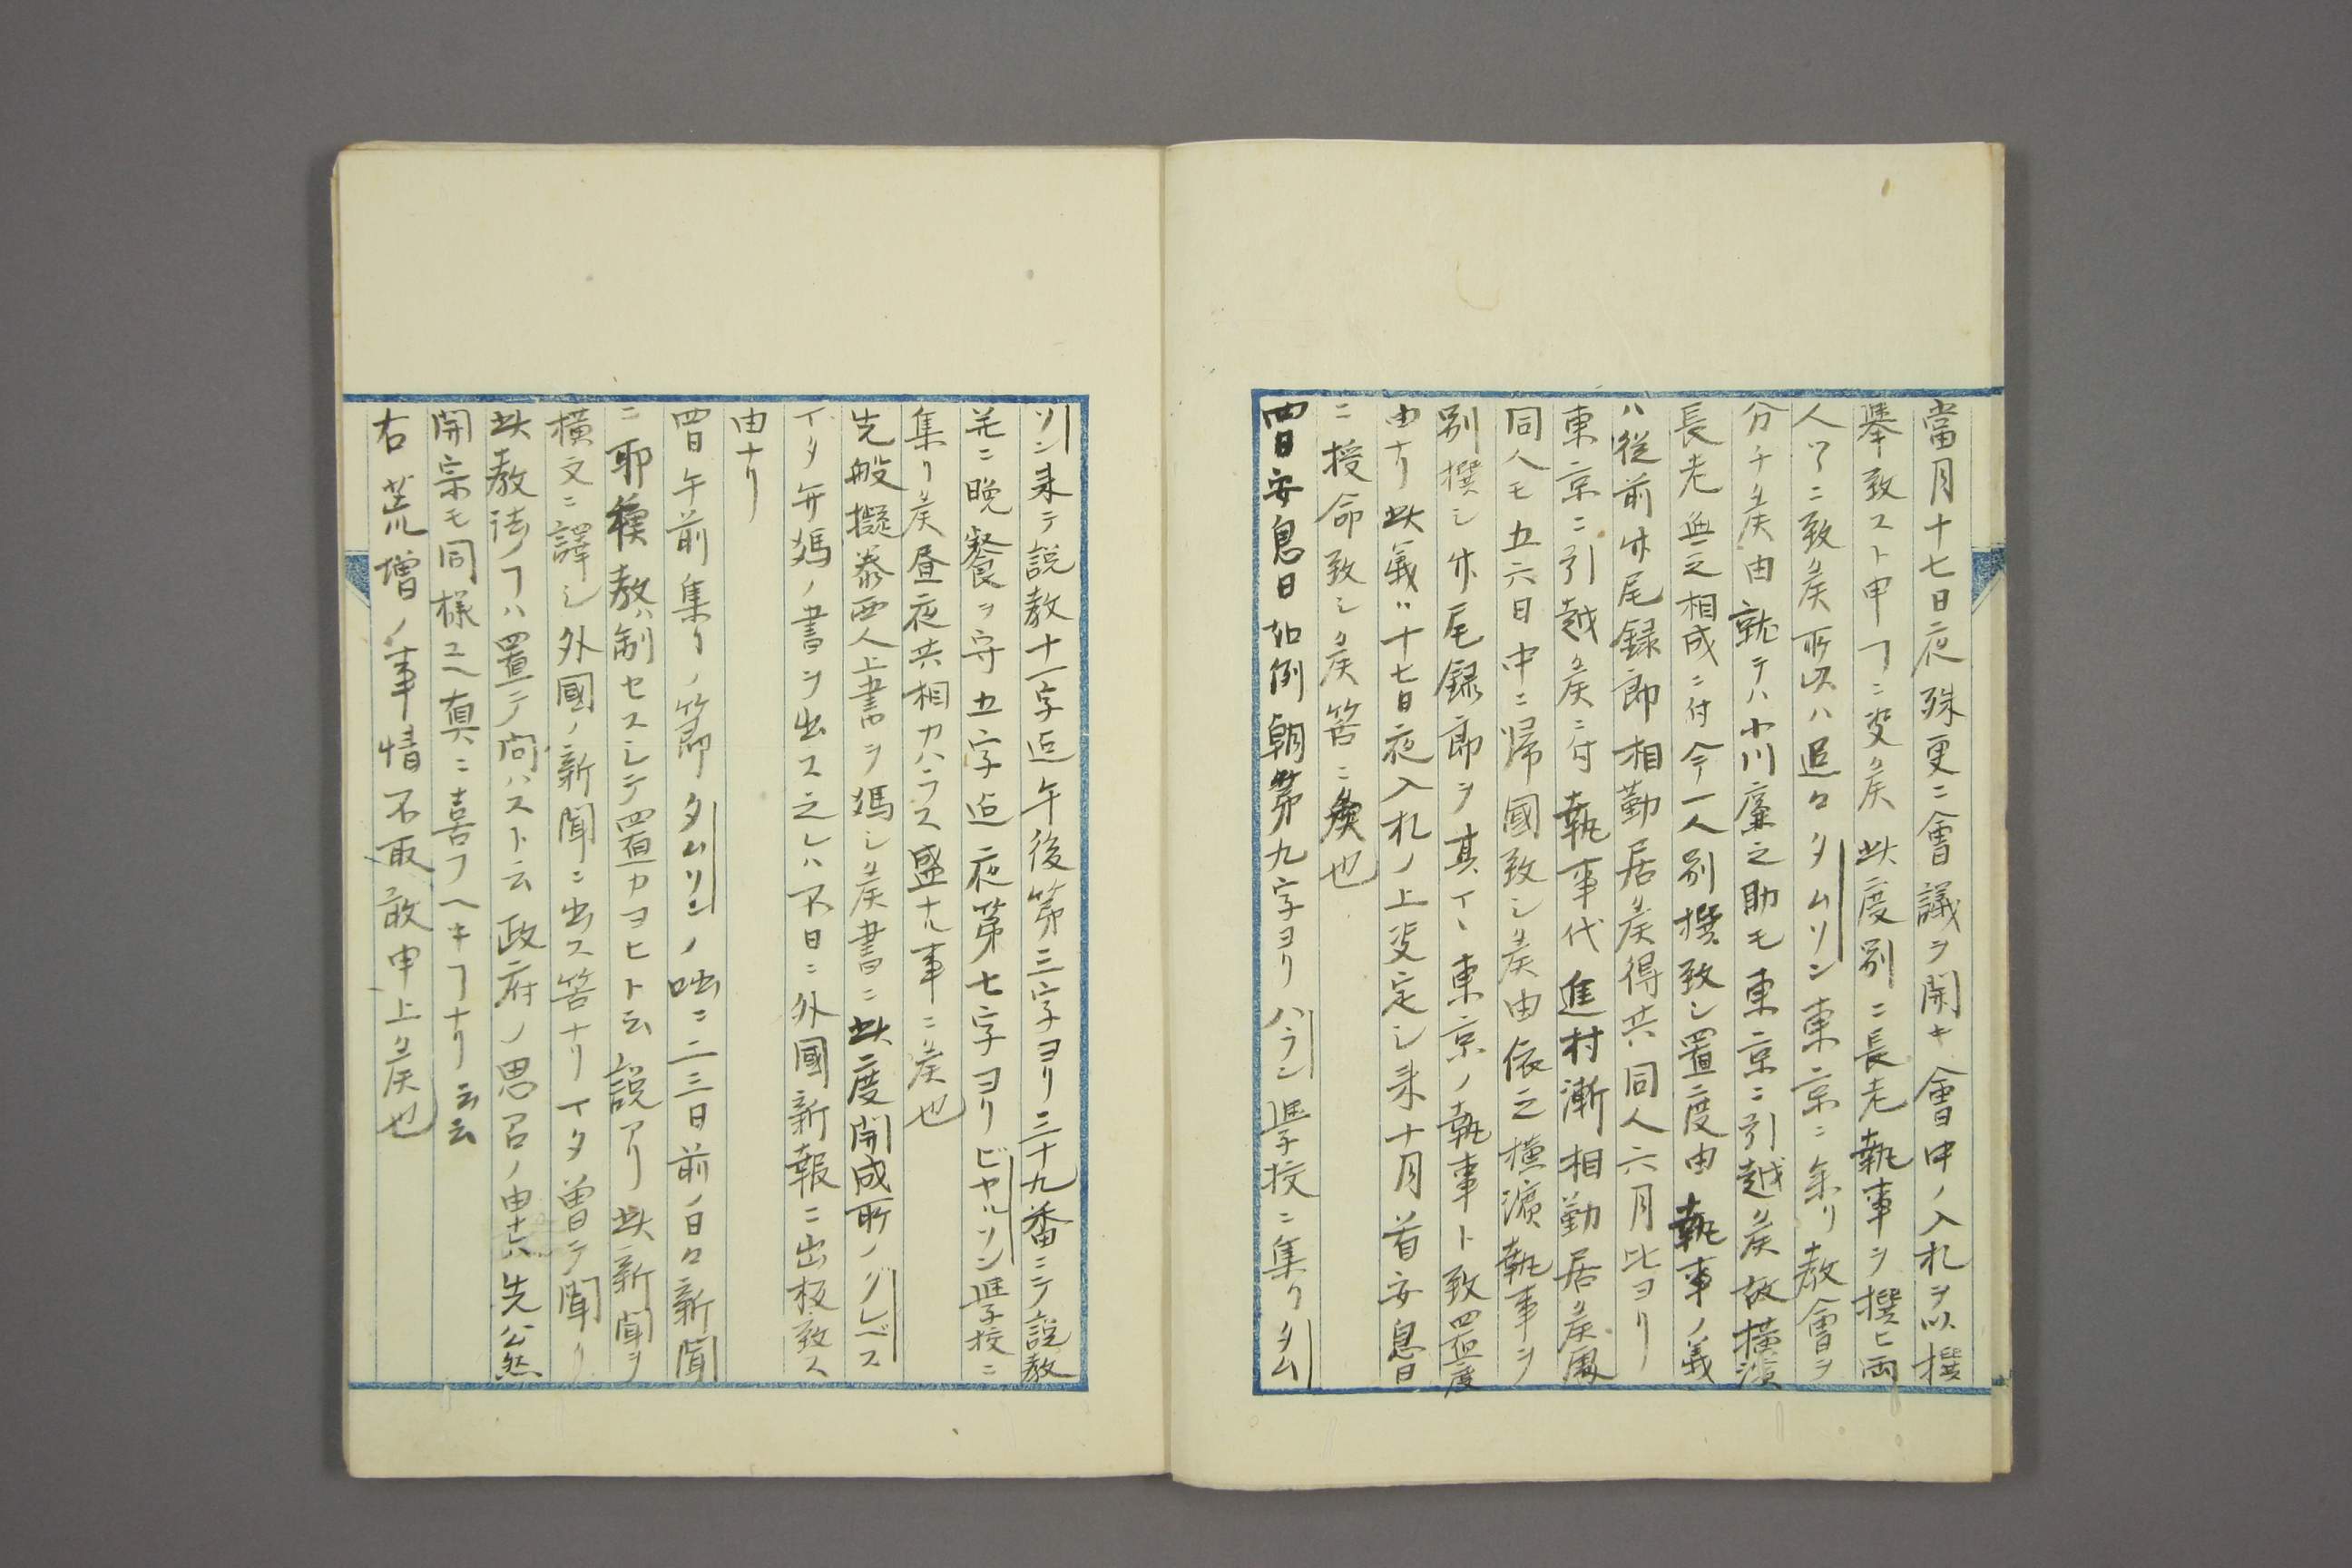 當月十七日夜殊更ニ會議ヲ開キ會中ノ入札ヲ以撰
擧致スト申ヿニ姿候此度別ニ長老執事ヲ撰ヒ両
人ツヽニ致候所以ハ追々タムソン東京ニ参リ教會ヲ
分チ候由就テハ小川廉之助モ東京ニ引越候故横濱
長老無之相成ニ付今一人別撰致シ置度由執事ノ義
ハ従前竹尾録郎相勤居候得共同人六月比ヨリ
東京ニ引越候ニ付執事代進村漸相勤居候處
同人モ五六日中ニ帰國致シ候由依之横濱執事ヲ
別撰シ竹尾録郎ヲ其イヽ東京ノ執事ト致置度
由ナリ此義ハ十七日夜入札ノ上姿定シ来十月首安息日
ニ授命致シ候筈ニ候也
四日安息日如例朝第九字ヨリハラン學校ニ集リタム
ソン来テ説教十一字迠午後第三字ヨリ三十九番ニテ説教
并ニ晩餐ヲ守五字迠夜第七字ヨリビヤルソン學校ニ
集リ候昼夜共相カハラス盛ナル事ニ候也
先般擬泰西人上書ヲ媽シ候書ニ此度開成所ノグレベス
イタ弁媽ノ書ヲ出ス之レハ不日ニ外國新報ニ出板致ス
由ナリ
四日午前集リノ節タムソンノ咄ニ二三日前ノ日々新聞
ニ耶穌教ハ制セスシテ置カヨヒト云説アリ此新聞ヲ
横文ニ譯シ外國ノ新聞ニ出ス筈ナリイタ曽テ聞リ
此教法ノヿハ置テ問ハスト云政府ノ思召ノ由六先公然
開宗モ同様ユヘ真ニ喜フヘキヿナリ云云
右荒増ノ事情不取敢申上候也